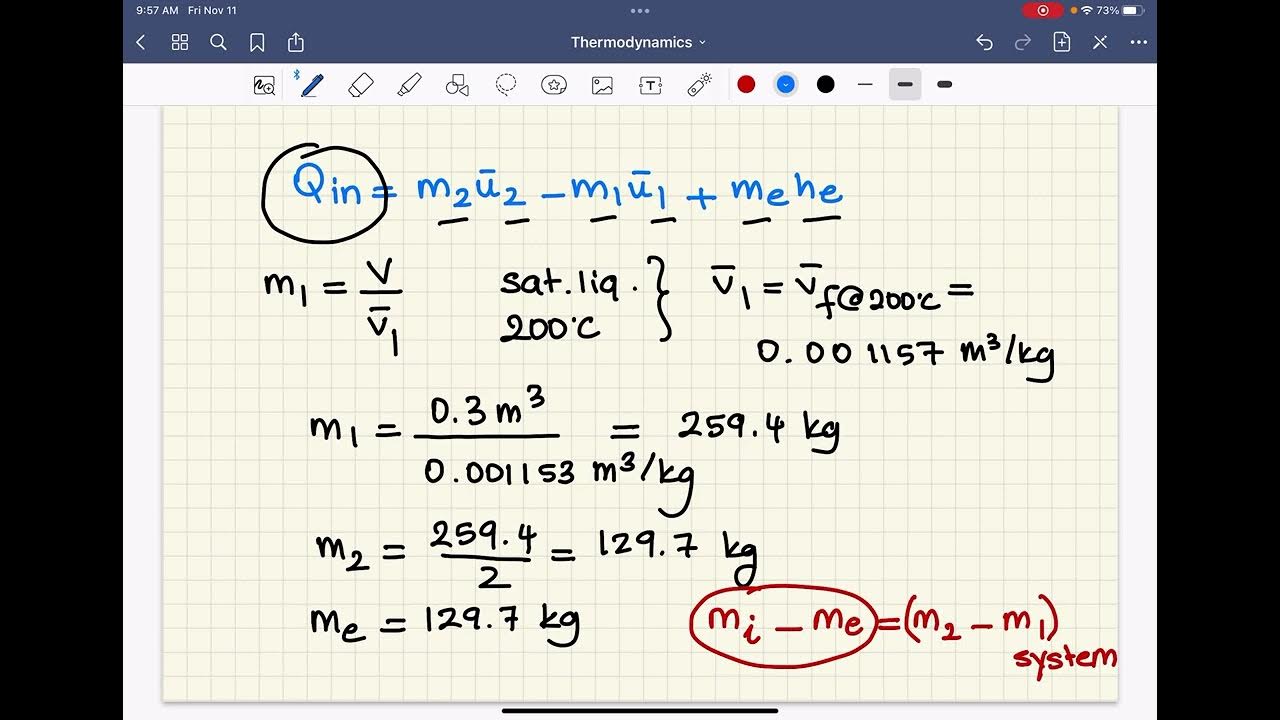 9:57 AM Fri Nov 11
73%
Thermodynamics
Qin = m₂ū₂ – m₁ū₁ + mₑhₑ
m₁ = V / v̄₁ sat. liq. 200°C } v̄₁ = v̄f@200°C =
0.001157 m³/kg
m₁ = 0.3 m³ / 0.001153 m³/kg = 259.4 kg
m₂ = 259.4 / 2 = 129.7 kg
mₑ = 129.7 kg
mᵢ – mₑ = (m₂ – m₁)
system